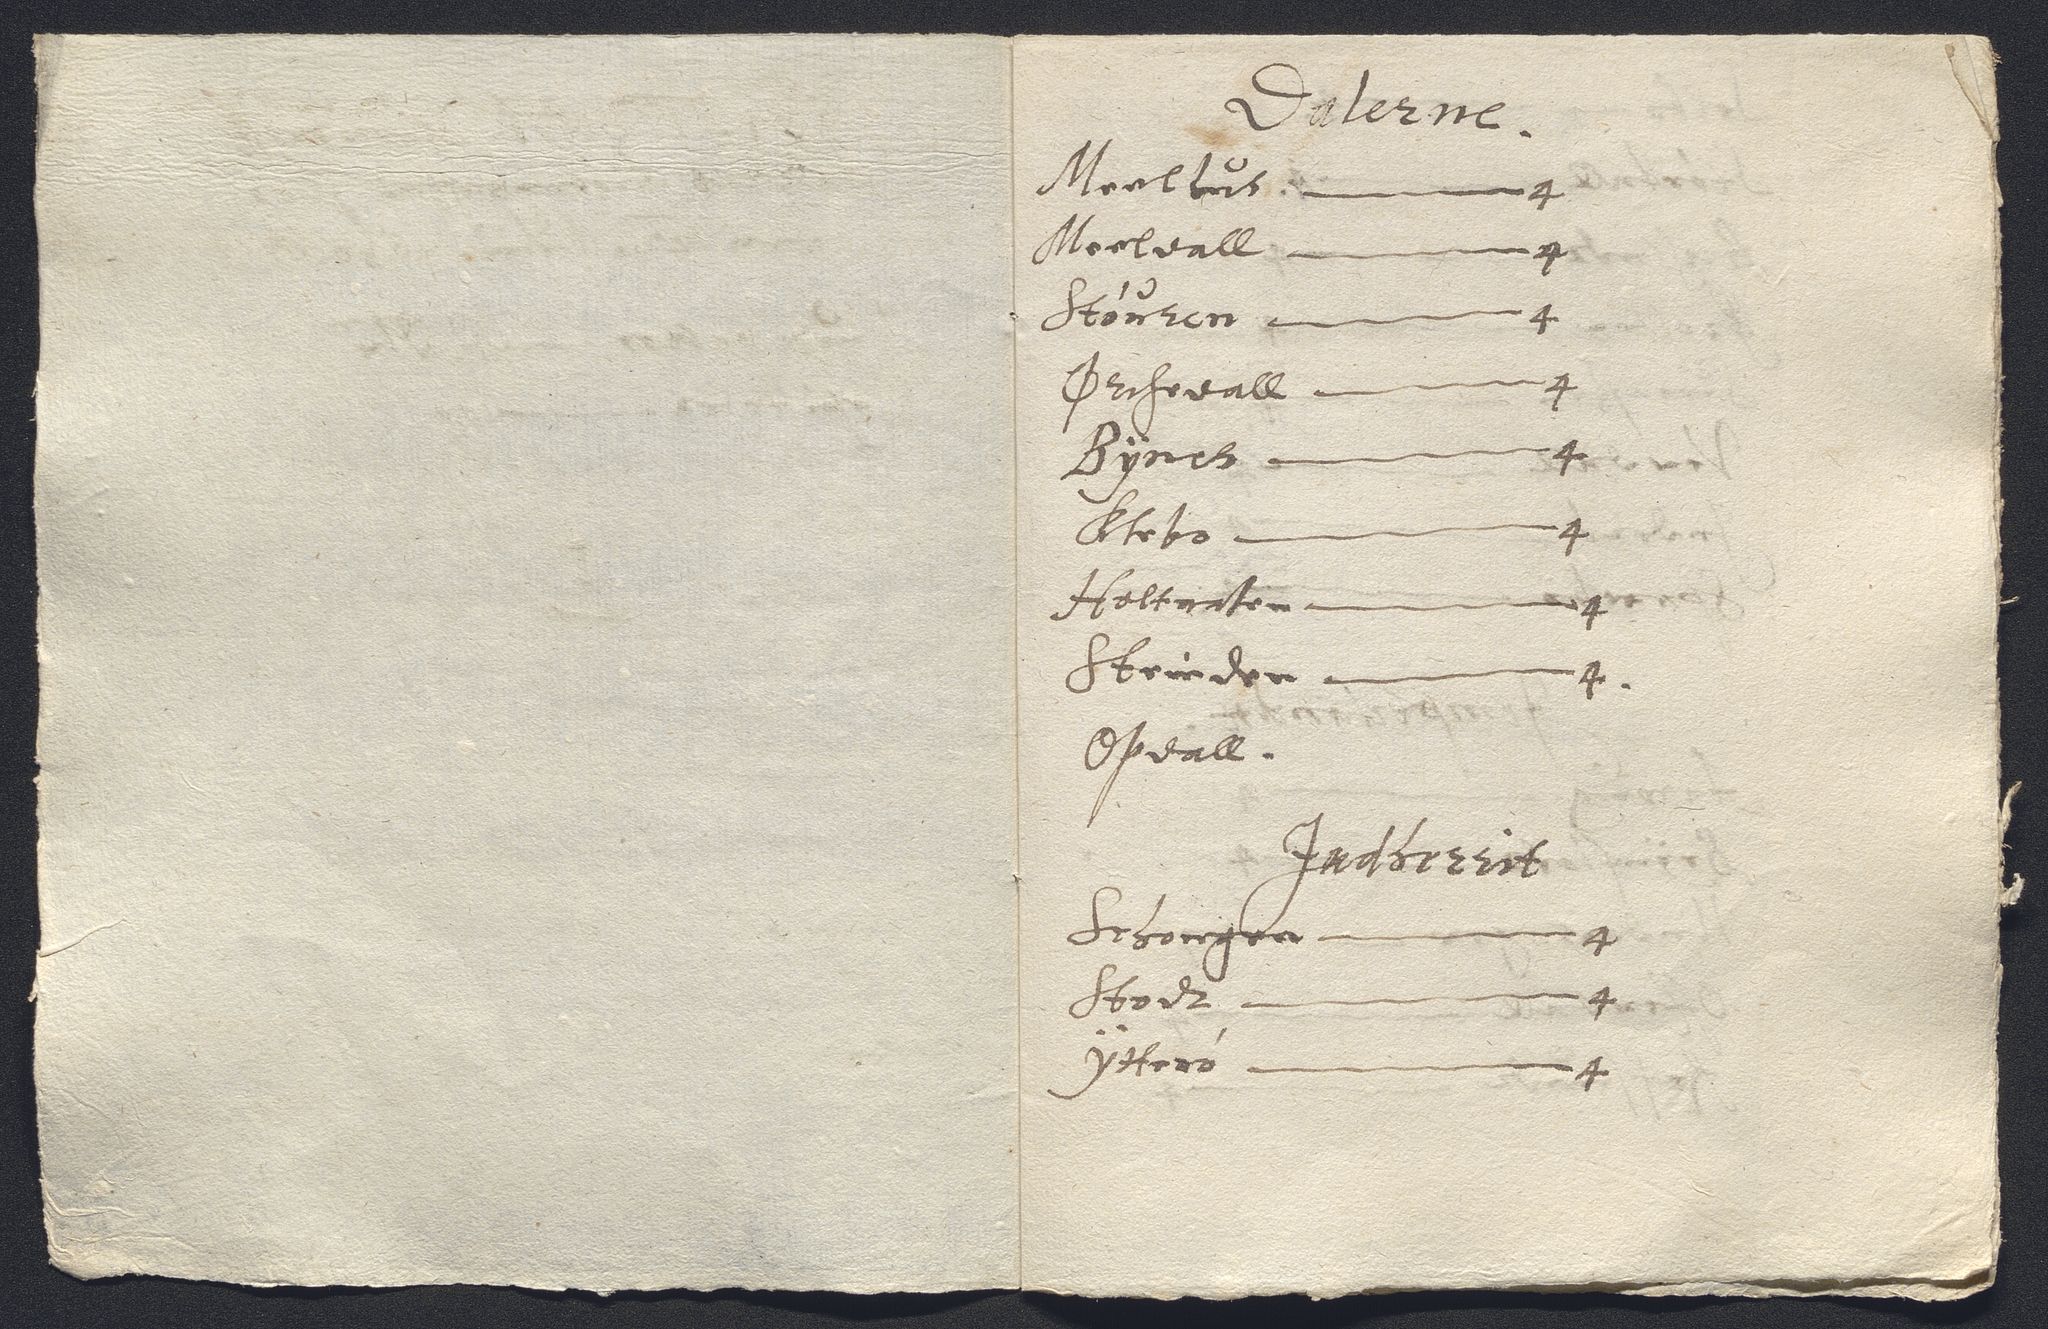 Dalerne.
Meelhus. 4
Meeldall 4
Stóuren 4
Ørchedall 4
Bÿnes 4
Klebo 4
Holtaalen 4
Strinden 4.
Opdall.
Indherrit
Schongen 4
Stodt 4
Ÿtteró 4